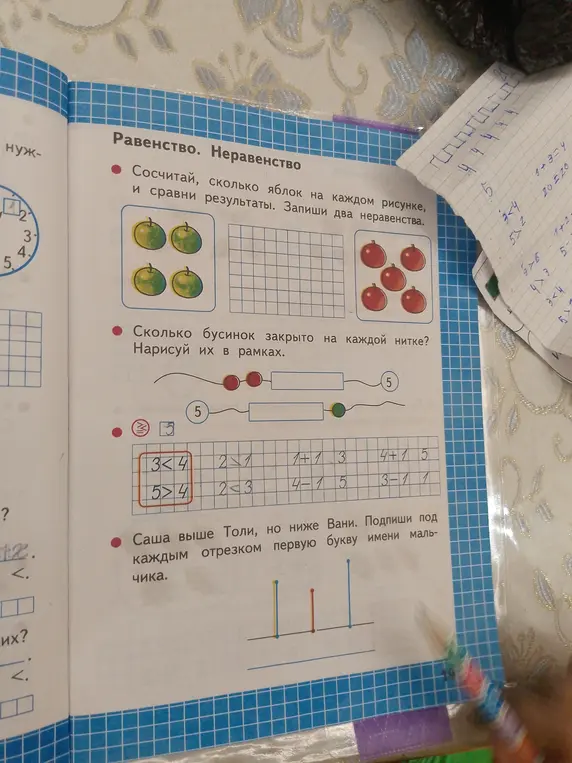 нуж-
2
2
3
4
5
Равенство. Неравенство
Сосчитай, сколько яблок на каждом рисунке,
и сравни результаты. Запиши два неравенства.
Сколько бусинок закрыто на каждой нитке?
Нарисуй их в рамках.
5
5
5
3<4 2>1 1+1 3 4+1 5
5>4 2<3 4-1 5 3-1 1
Саша выше Толи, но ниже Вани. Подпиши под
каждым отрезком первую букву имени маль-
чика.
?
<.
их?
<.
1+3-4
5
3<4
5>2
4>3
3<4